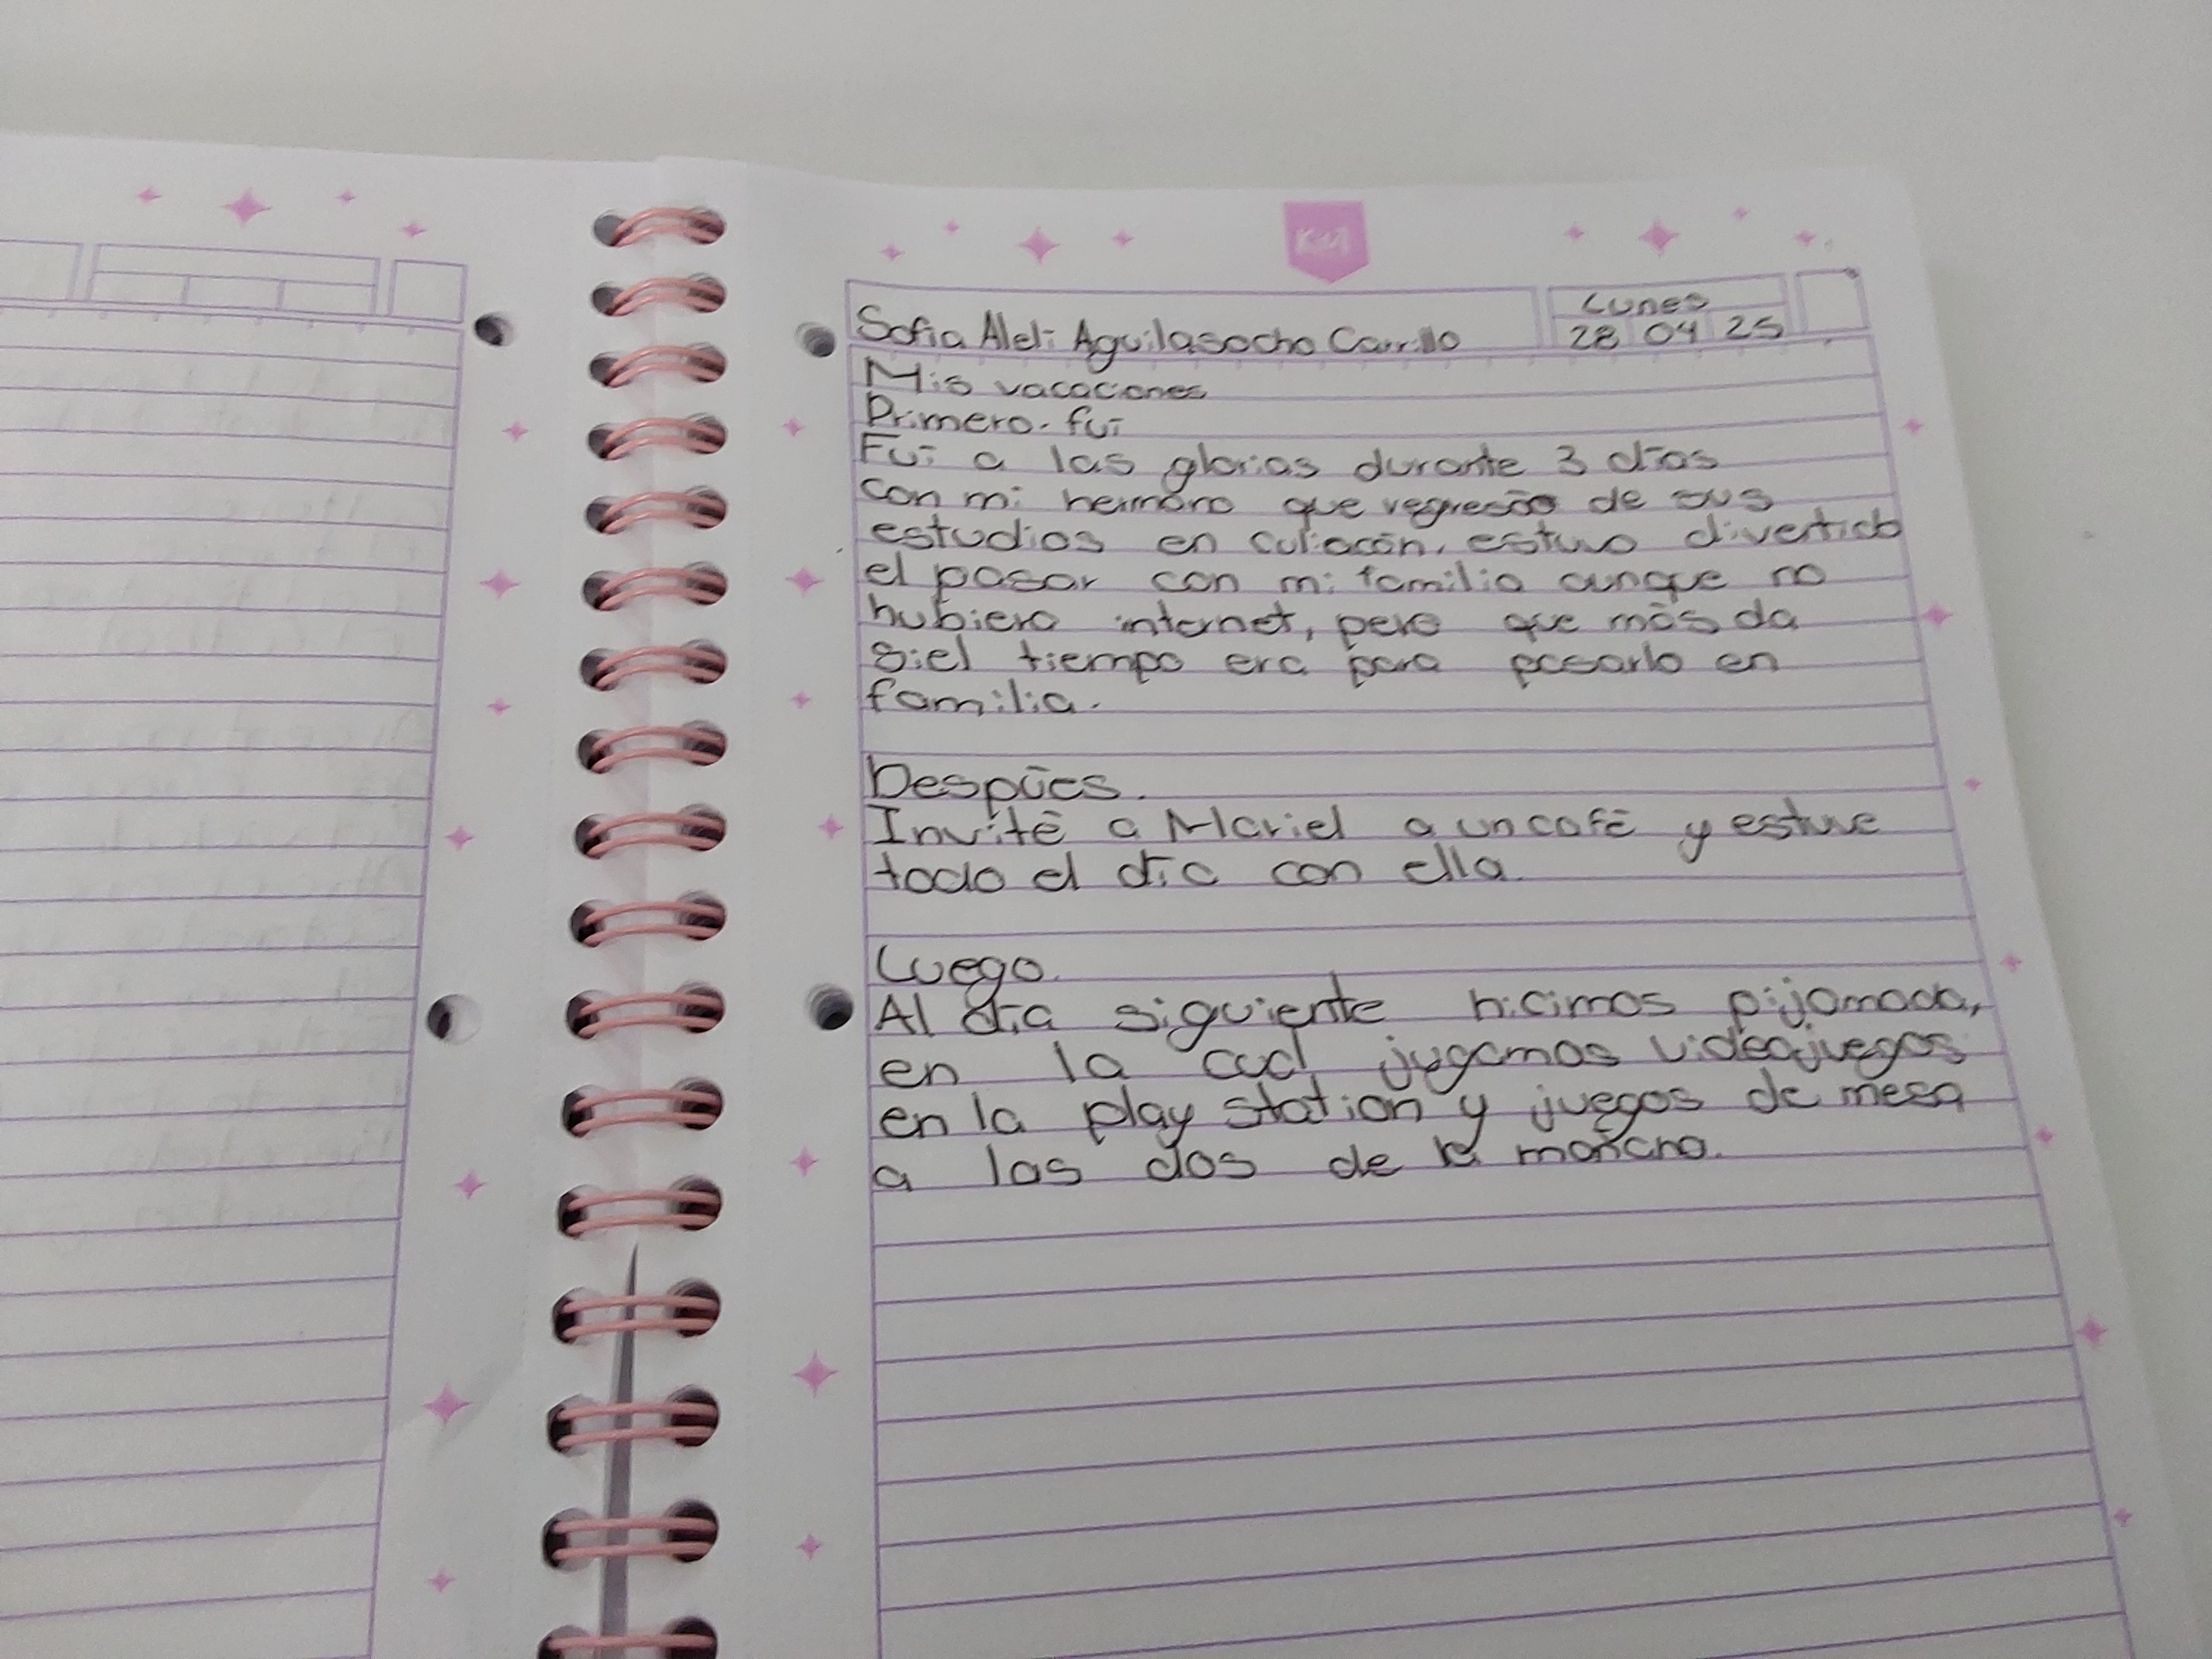 Kiut
Sofia Aleli Aguilasocho Carrillo
Lunes
28 04 25
Mis vacaciones
Primero. fui
Fui a las glorias durante 3 días
con mi hermano que regresó de sus
estudios en culiacán, estuvo divertido
el pasar con mi familia aunque no
hubiera internet, pero que más da
si el tiempo era para pasarlo en
familia.
Despúes.
Invité a Mariel a un café y estuve
todo el día con ella.
Luego.
Al día siguiente hicimos pijamada,
en la cual jugamos videojuegos
en la play station y juegos de mesa
a las dos de la mañana.